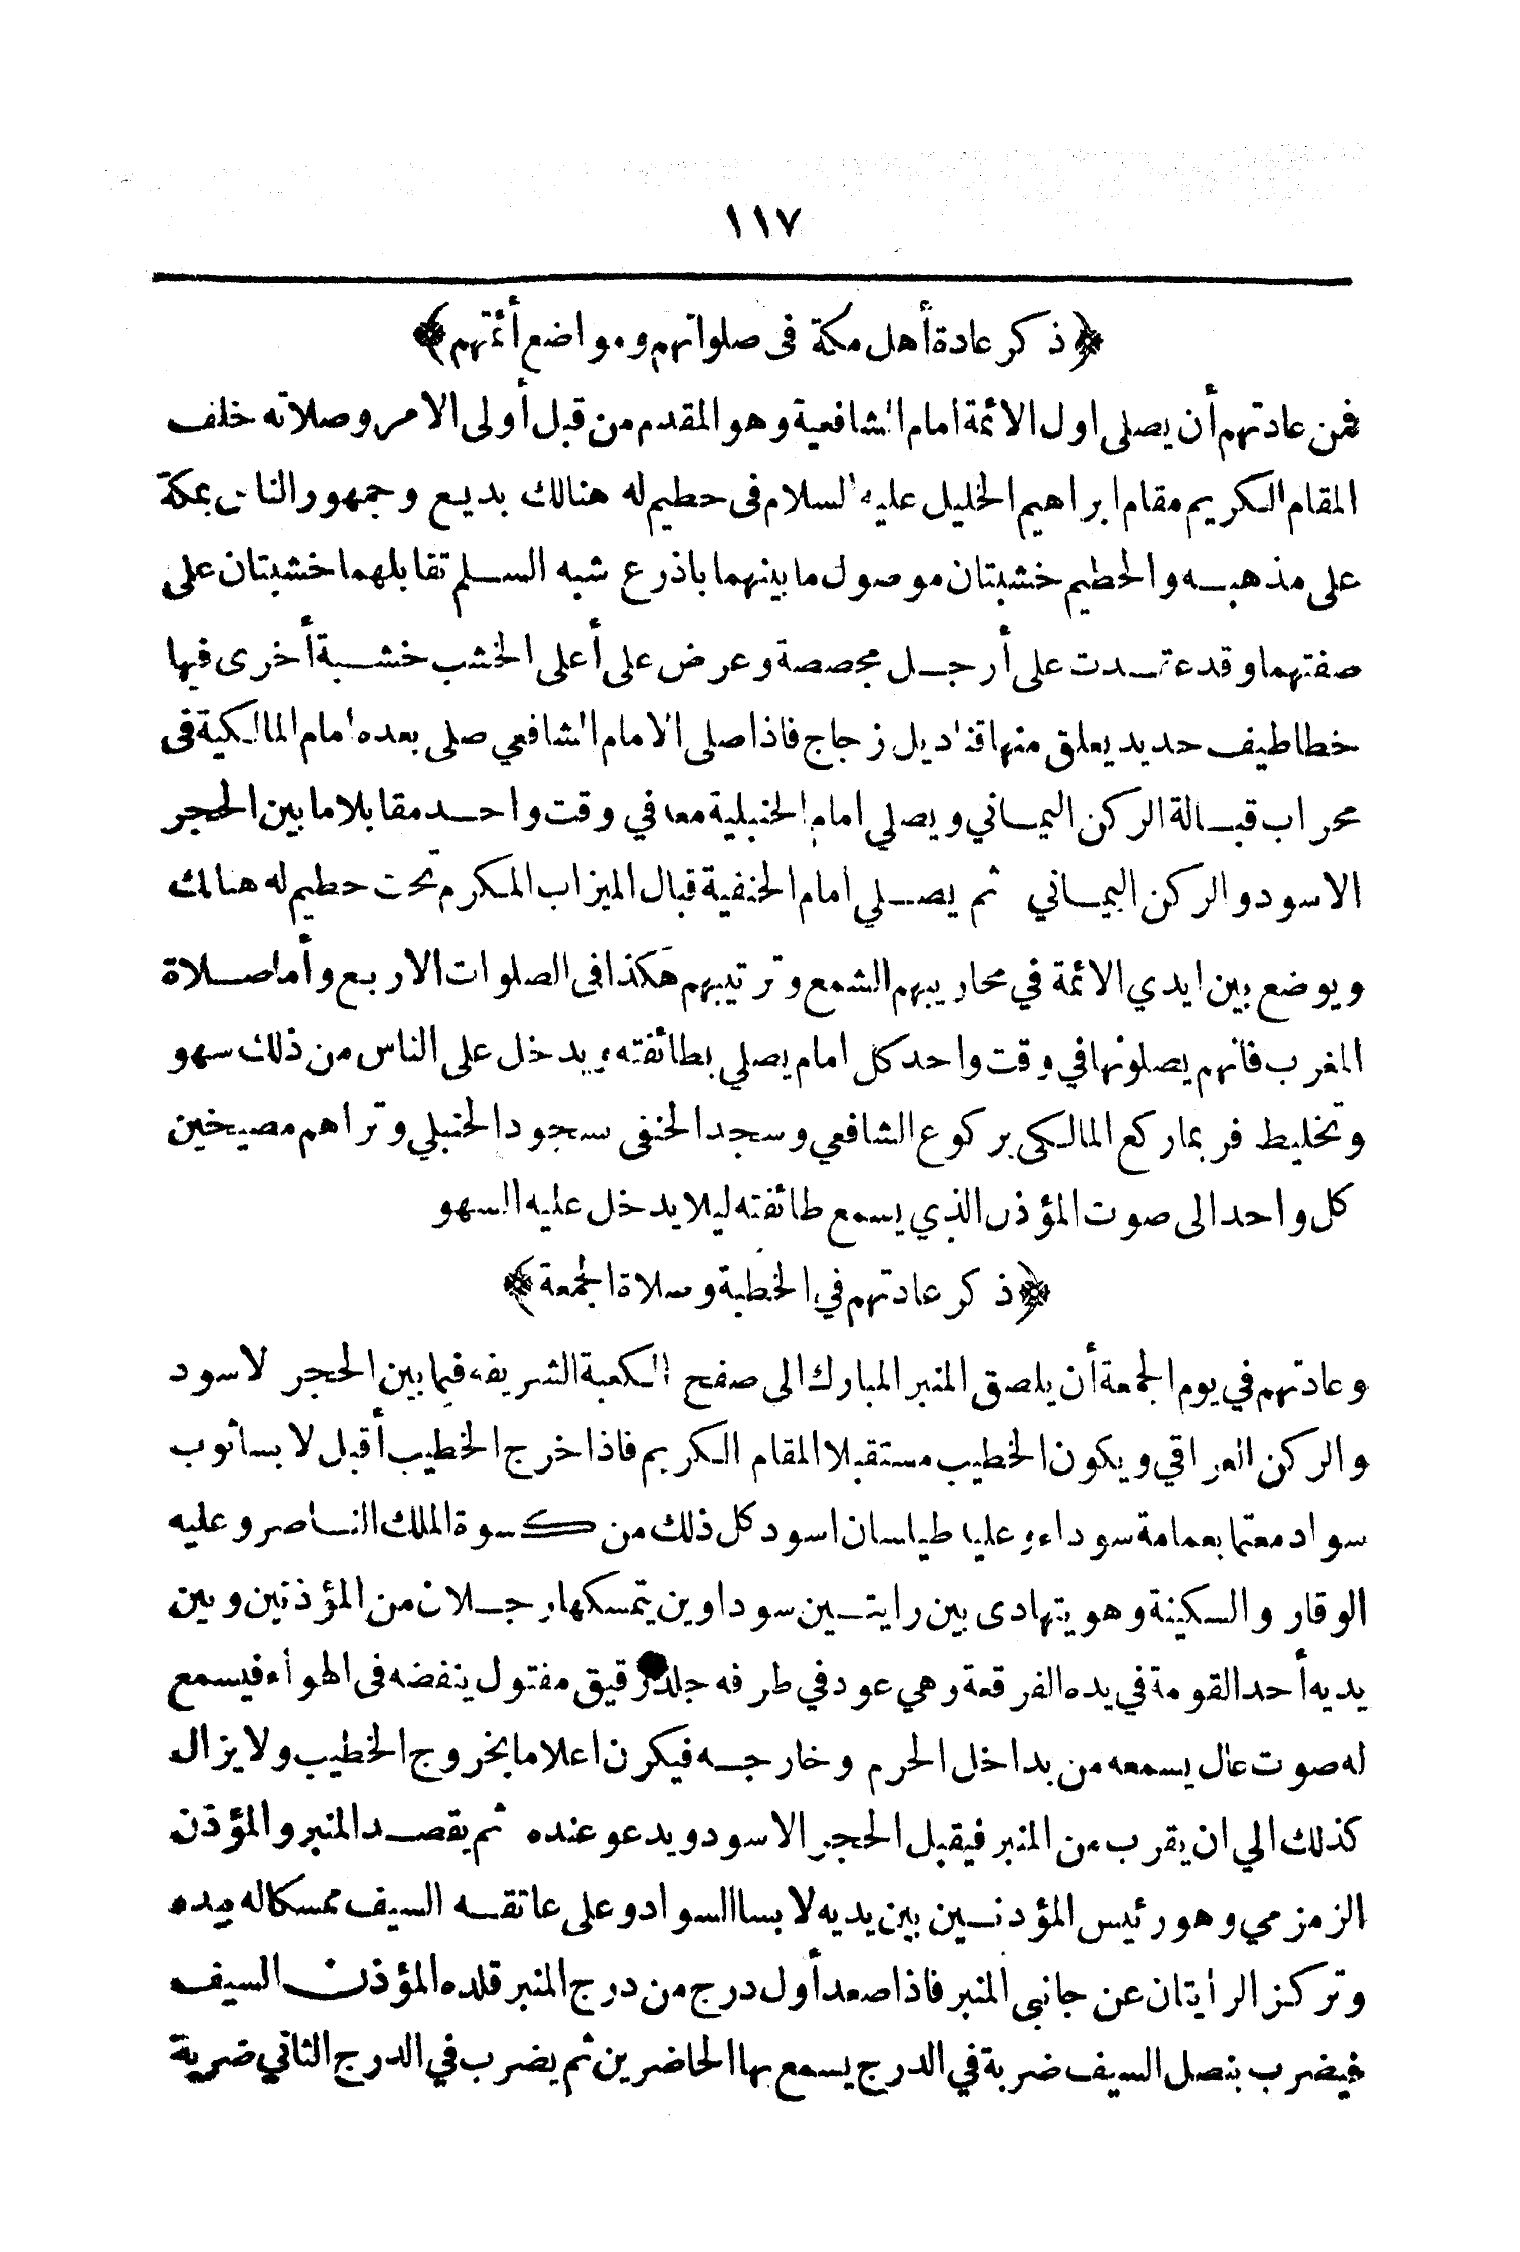 ١١٧
﴿ذكر عادة أهل مكة فى صلواتهم ومواضع أئمتهم﴾
فمن عادتهم أن يصلى اول الائمة امام الشافعية وهو المقدم من قبل أولى الامر وصلاته خلف
المقام الكريم مقام ابراهيم الخليل عليه السلام فى حطيم له هنالك بديع وجمهور الناس بمكة
على مذهبه والحطيم خشبتان موصول ما بينهما باذرع شبه السلم تقابلهما خشبتان على
صفتهما وقد عتدت على أرجل مجصصة وعرض على أعلى الخشب خشبة أخرى فيها
خطاطيف حديد يعلق منها قناديل زجاج فاذا صلى الامام الشافعي صلى بعده امام المالكية فى
محراب قبالة الركن اليماني ويصلي امام الحنبلية معه في وقت واحد مقابلا ما بين الحجر
الاسود والركن اليماني ثم يصلي امام الحنفية قبال الميزاب المكرم تحت حطيم له هنالك
ويوضع بين ايدي الائمة في محاريبهم الشمع وترتيبهم هكذا فى الصلوات الاربع وأما صلاة
المغرب فانهم يصلونها في وقت واحد كل امام يصلي بطائفته ويدخل على الناس من ذلك سهو
وتخليط فربما ركع المالكى بركوع الشافعي وسجد الحنفى بسجود الحنبلي وتراهم مصيخين
كل واحد الى صوت المؤذن الذي يسمع طائفته ليلا يدخل عليه السهو
﴿ذكر عادتهم في الخطبة وصلاة الجمعة﴾
وعادتهم في يوم الجمعة أن يلصق المنبر المبارك الى صفح الكعبة الشريفة فيما بين الحجر الاسود
والركن العراقي ويكون الخطيب مستقبلا المقام الكريم فاذا خرج الخطيب أقبل لابسا ثوب
سواد معتما بعمامة سوداء وعليه طيلسان اسود كل ذلك من كسوة الملك الناصر وعليه
الوقار والسكينة وهو يتهادى بين رايتين سوداوين يتمسكها رجلان من المؤذنين وبين
يديه أحد القومة في يده الفرقعة وهي عود في طرفه جلد رقيق مفتول ينفضه فى الهواء فيسمع
له صوت عال يسمعه من بداخل الحرم وخارجه فيكون اعلاما بخروج الخطيب ولا يزال
كذلك الي ان يقرب من المنبر فيقبل الحجر الاسود ويدعو عنده ثم يقصد المنبر والمؤذن
الزمزمي وهو رئيس المؤذنين بين يديه لابسا السواد وعلى عاتقه السيف ممسكا له بيده
وتركز الرايتان عن جانبى المنبر فاذا صعد أول درج من درج المنبر قلده المؤذن السيف
فيضرب بنصل السيف ضربة في الدرج يسمع بها الحاضرين ثم يضرب في الدرج الثاني ضربة